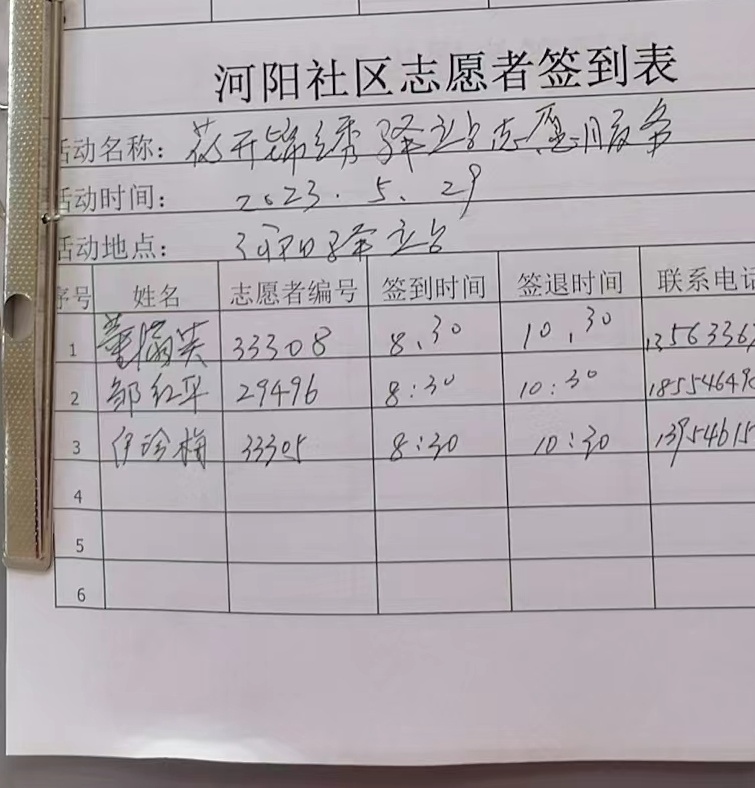 河阳社区志愿者签到表
活动名称：花开锦绣驿站志愿服务
活动时间：2023.5.29
活动地点：河阳驿站
序号 姓名 志愿者编号 签到时间 签退时间 联系电话
1 董 英 33308 8.30 10.30 13563367
2 邹红平 29496 8:30 10:30 18554649
3 伊珍梅 33305 8:30 10:30 13954615
4
5
6